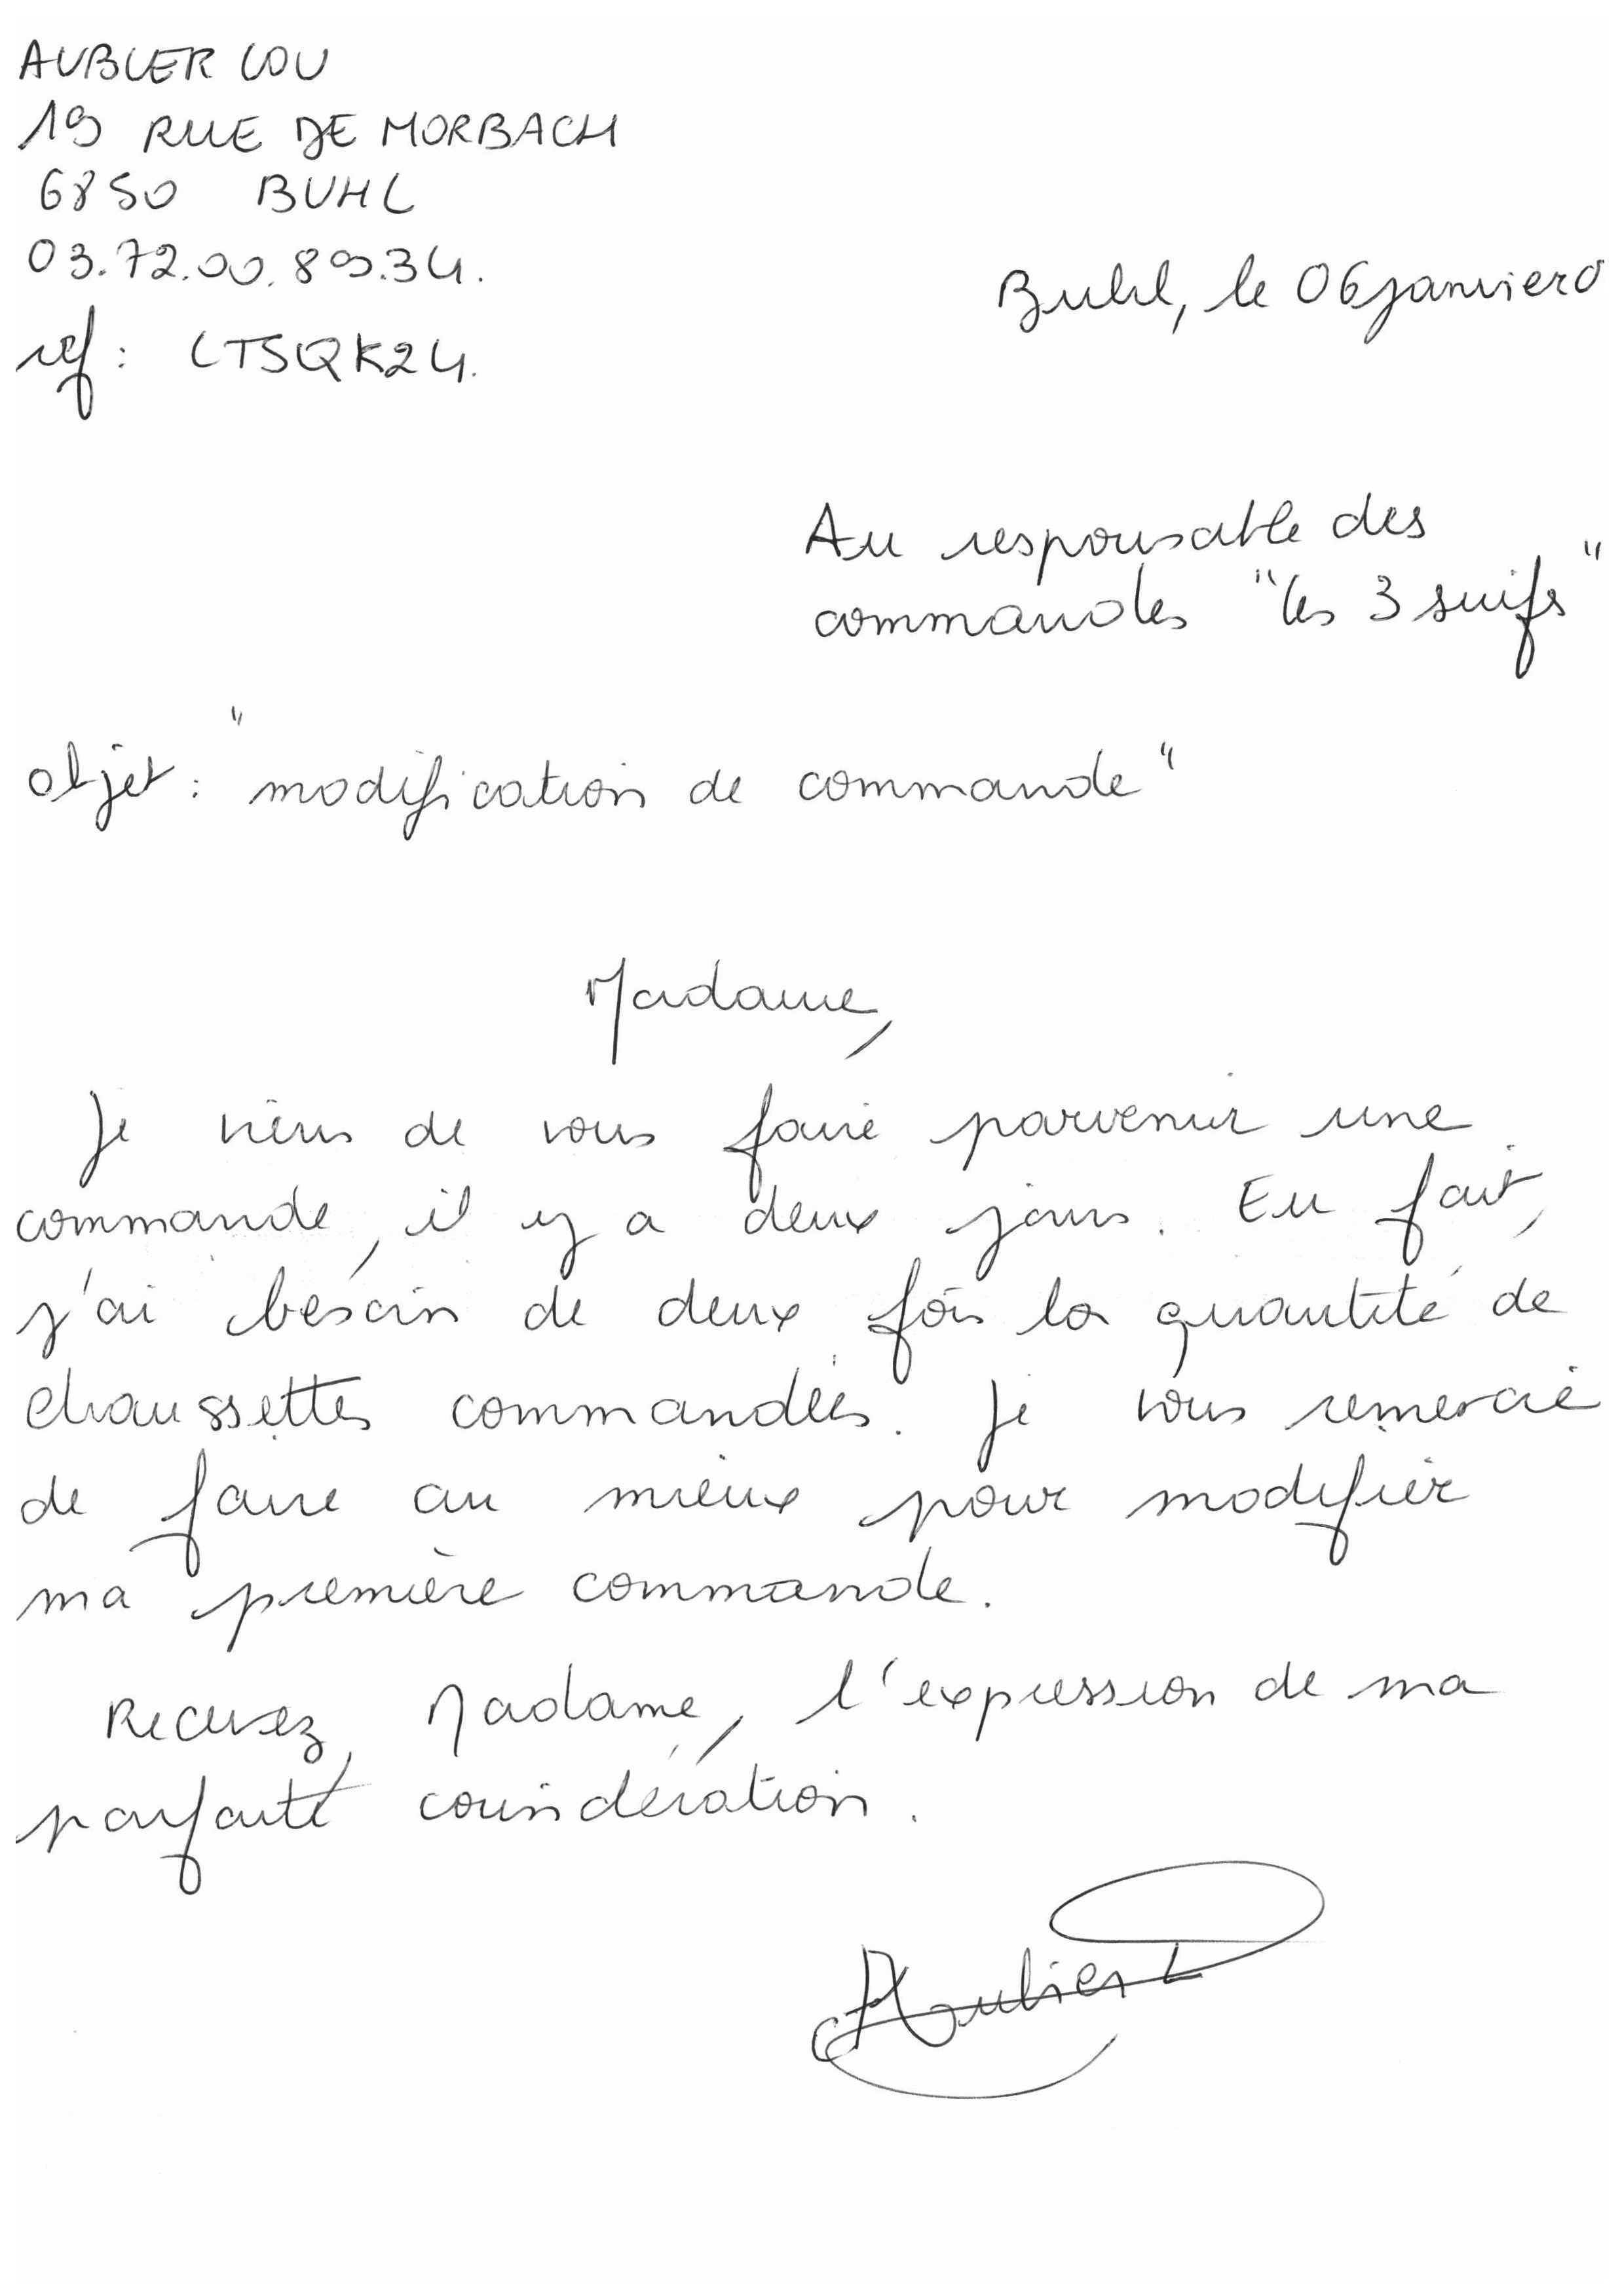 AUBIER LOU
19 RUE DE MORBACH
6850 BUHL
03.72.00.89.34.
Buhl, le 06 janvier 0
ref : LTSQK24.
Au responsable des
commandes "les 3 suifs"
objet : "modification de commande"
Madame,
Je viens de vous faire parvenir une
commande, il y a deux jours. En fait,
j'ai besoin de deux fois la quantité de
chaussettes commandées. Je vous remercie
de faire au mieux pour modifier
ma première commande.
Recevez, Madame, l'expression de ma
parfaite considération.
Aubier L